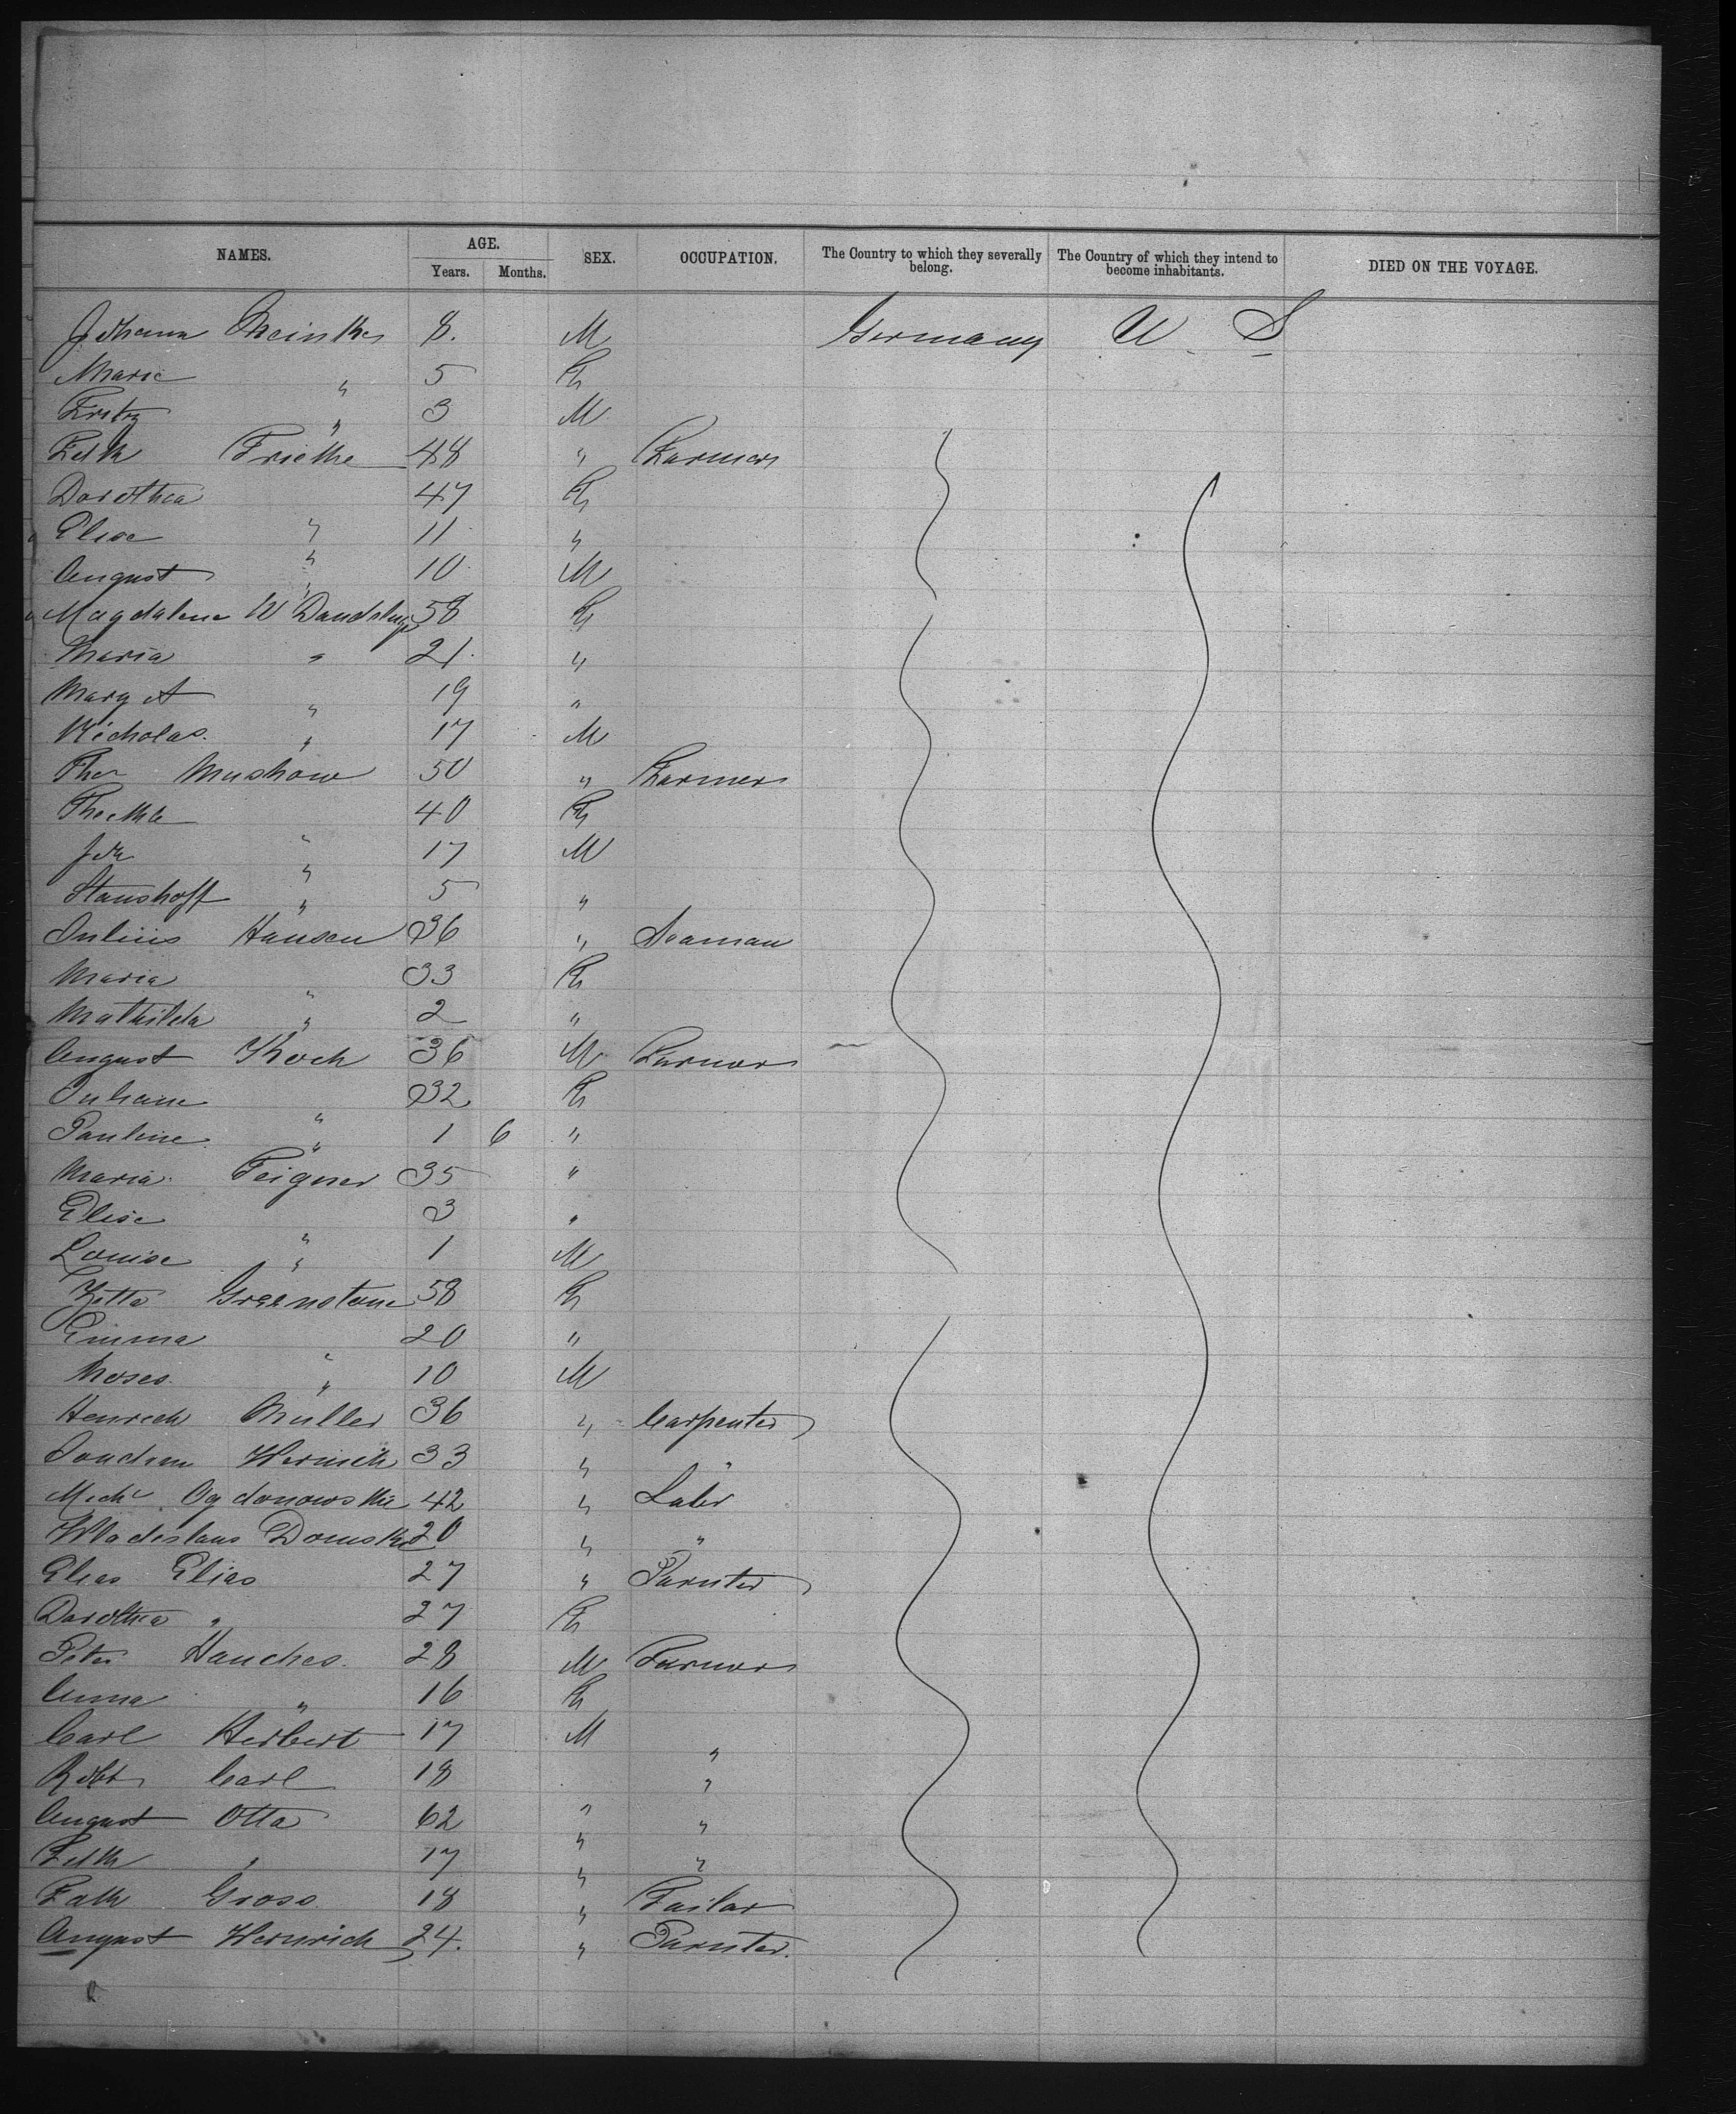 NAMES. AGE. SEX. OCCUPATION. The Country to which they severally belong. The Country of which they intend to become inhabitants. DIED ON THE VOYAGE.
Years. Months.
Johann Meinke 8. M Germany U. S
Marie " 5 F
Fritz " 3 M
Fried Fricke 48 " Farmer
Dorothea 47 F
Elise " 11 "
August " 10 M
Magdalene W 58 F
Maria " 21 "
Marg A " 19 "
Nicholas " 17 M
Mushow 50 " Farmer
40 F
Joh " 17 M
" 5 "
Julius Hansen 36 " Seaman
Maria 33 F
Mathilda " 2 "
August Koch 36 M Farmer
Juliane 32 F
Pauline " 1 6 "
Maria Feigner 35 "
Elise 3 "
Louise " 1 M
Greenstone 58 F
Emma 20 "
Moses " 10 M
Henrich Muller 36 " Carpenter
33 " "
Mich Ogdonowski 42 " Labr
Wladislaus Domski 20 " "
Elias Elias 27 " Painter
Dorothea " 27 F
Peter Hanches 28 M Farmer
Anna " 16 F
Carl Herbert 17 M "
Robt Carl 18 " "
August Otta 62 " "
" 17 " "
Gross 18 " Tailor
August Heinrich 24. " Painter.